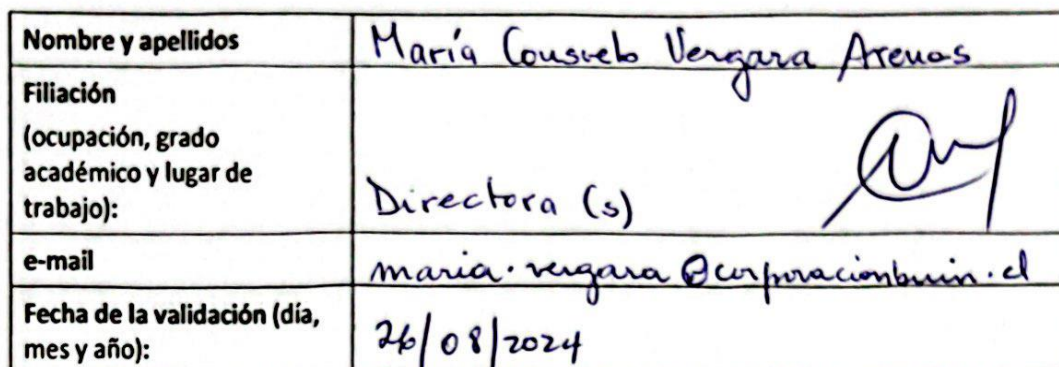 Nombre y apellidos
María Consuelo Vergara Arenas
Filiación
(ocupación, grado
académico y lugar de
trabajo):
Directora (s)
e-mail
maria.vergara@corporacionbuin.cl
Fecha de la validación (día,
mes y año):
26/08/2024